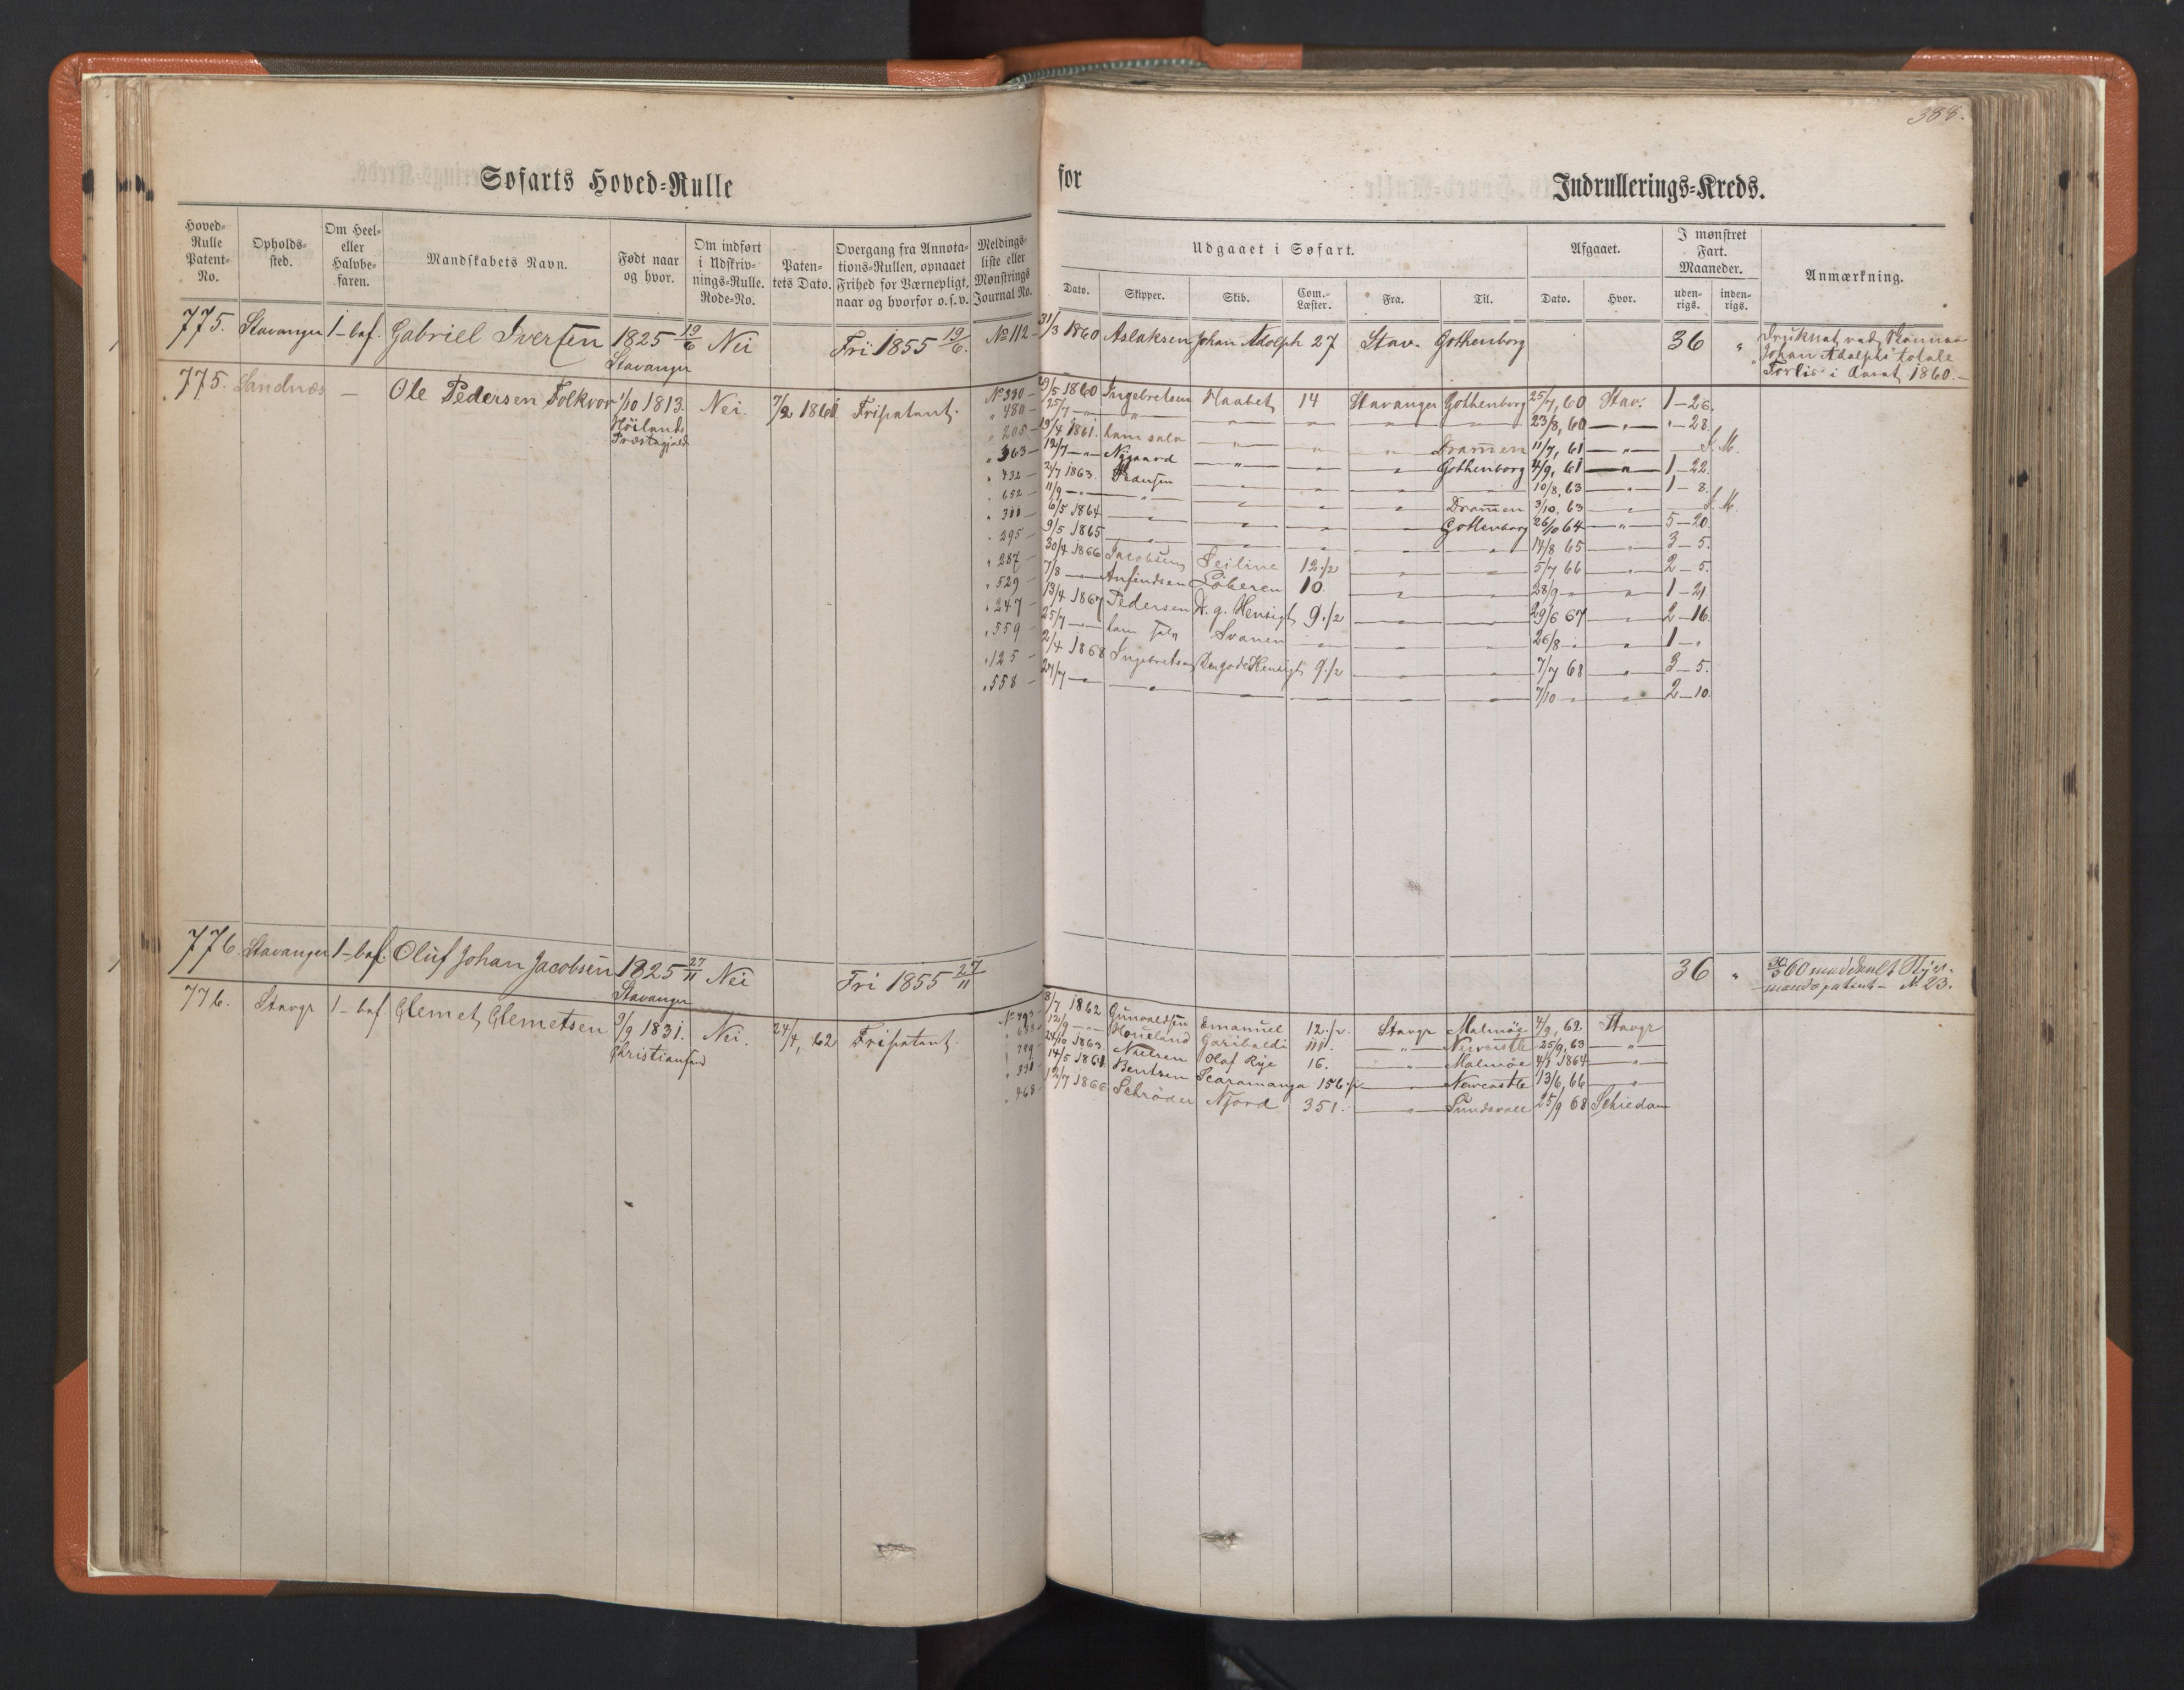 388.
Søfarts Hoved-Rulle for Indrullerings-Kreds.
Hoved-Rulle Patent-No. Opholds-sted. Om Heel- eller Halvbe-faren. Mandskabets Navn. Født naar og hvor. Om indført i Udskriv-nings-Rulle. Rode-No. Paten-tets Dato. Overgang fra Annota-tions-Rullen, opnaaet Frihed for Værnepligt, naar og hvorfor o.s.v. Meldings-liste eller Mønstrings Journal No.
Udgaaet i Søfart. Afgaaet. I mønstret Fart. Maaneder. Anmærkning.
Dato. Skipper. Skib. Com.-Læster. Fra. Til. Dato. Hvor. uden-rigs. inden-rigs.
775. Stavanger 1-bef. Gabriel Iversen 1825 19/6 Nei Fri 1855 19/6. No 112 31/3 1860 Aslaksen Johan Adolph 27 Stav. Gothenborg 36 " Druknet ved
Stavanger Johan Adolphs totale
Forlis i Aaret 1860.-
775. Sandnæs – Ole Pedersen Folkvor 1/10 1813. Nei. 7/2 1860 Fripatent. No 330 – 9/5 1860 Ingebretsen Haabet 14 Stavanger Gothenborg 25/7, 60 Stav. 1-26.
Höilands Præstegjæld " 480 – 25/7 – " – " – – – – – 23/8, 60 – " – "-28.
" 205 – 19/4 1861. ham selv – " – – " Drammen 11/7, 61 – " – S. M.
" 363 – 12/7 – " – Nygaard – " – – " Gothenborg 4/9, 61 – " – 1-22.
" 432 – 2/7 1863. – – – – – 10/8, 63 – " – 1-8.
" 652 – 11/9 – " – " – – – " Drammen 3/10, 63 – S. M.
" 311 – 6/5 1864 – – – – " Gothenborg 26/10 64 – " – 5-20.
" 295 – 9/5 1865 – – – – – – 14/8 65 – " – 3-5.
" 287 – 30/4 1866 Jacobsen Seiline 12 1/2 – – 5/7 66 – 2-5.
" 529 – 7/8 – Anfindsen Löberen 10. – – 28/9 – " – 1-21
" 247 – 13/4 1867 Pedersen D. g. Hensigt 9 1/2 – – 29/6 67 – 2-16.
" 559 – 25/7 – – ham selv Svanen – – – 26/8 – " – 1-"
" 125 – 2/4 1868 Ingebretsen Den gode Hensigt 9 1/2 – – 7/7 68 – " – 3-5.
" 558 – 24/7 – – – – – – 7/10 – – 2-10.
776. Stavanger 1-bef. Oluf Johan Jacobsen 1825 27/11 Nei Fri 1855 27/11 36 " 30/5 60 meddeelt Styr-
Stavanger mandspatent – No 23.
776. Stavgr 1-bef. Clemet Clemetsen 9/9 1831. Nei. 24/4, 62 Fripatent. 8/7 1862. Gunvaldsen Emanuel 12 1/2. Stavgr Malmöe 4/9, 62 Stavgr
Christiansand 12/9 – – Garibaldi – " – Newcastle 25/9, 63 – " –
" 799 – 24/10 1863. Nielsen Olaf Rye 16. – " – Malmöe 4/1 1864 – " –
" 331 – 14/5 1864 Bentzen Scaramanga 156 1/2 – Newcastle 13/6, 66 – " –
" 468 – 12/7 1866 Schröder Njord 351. – " – Sundsvall 25/9 68 Schiedam